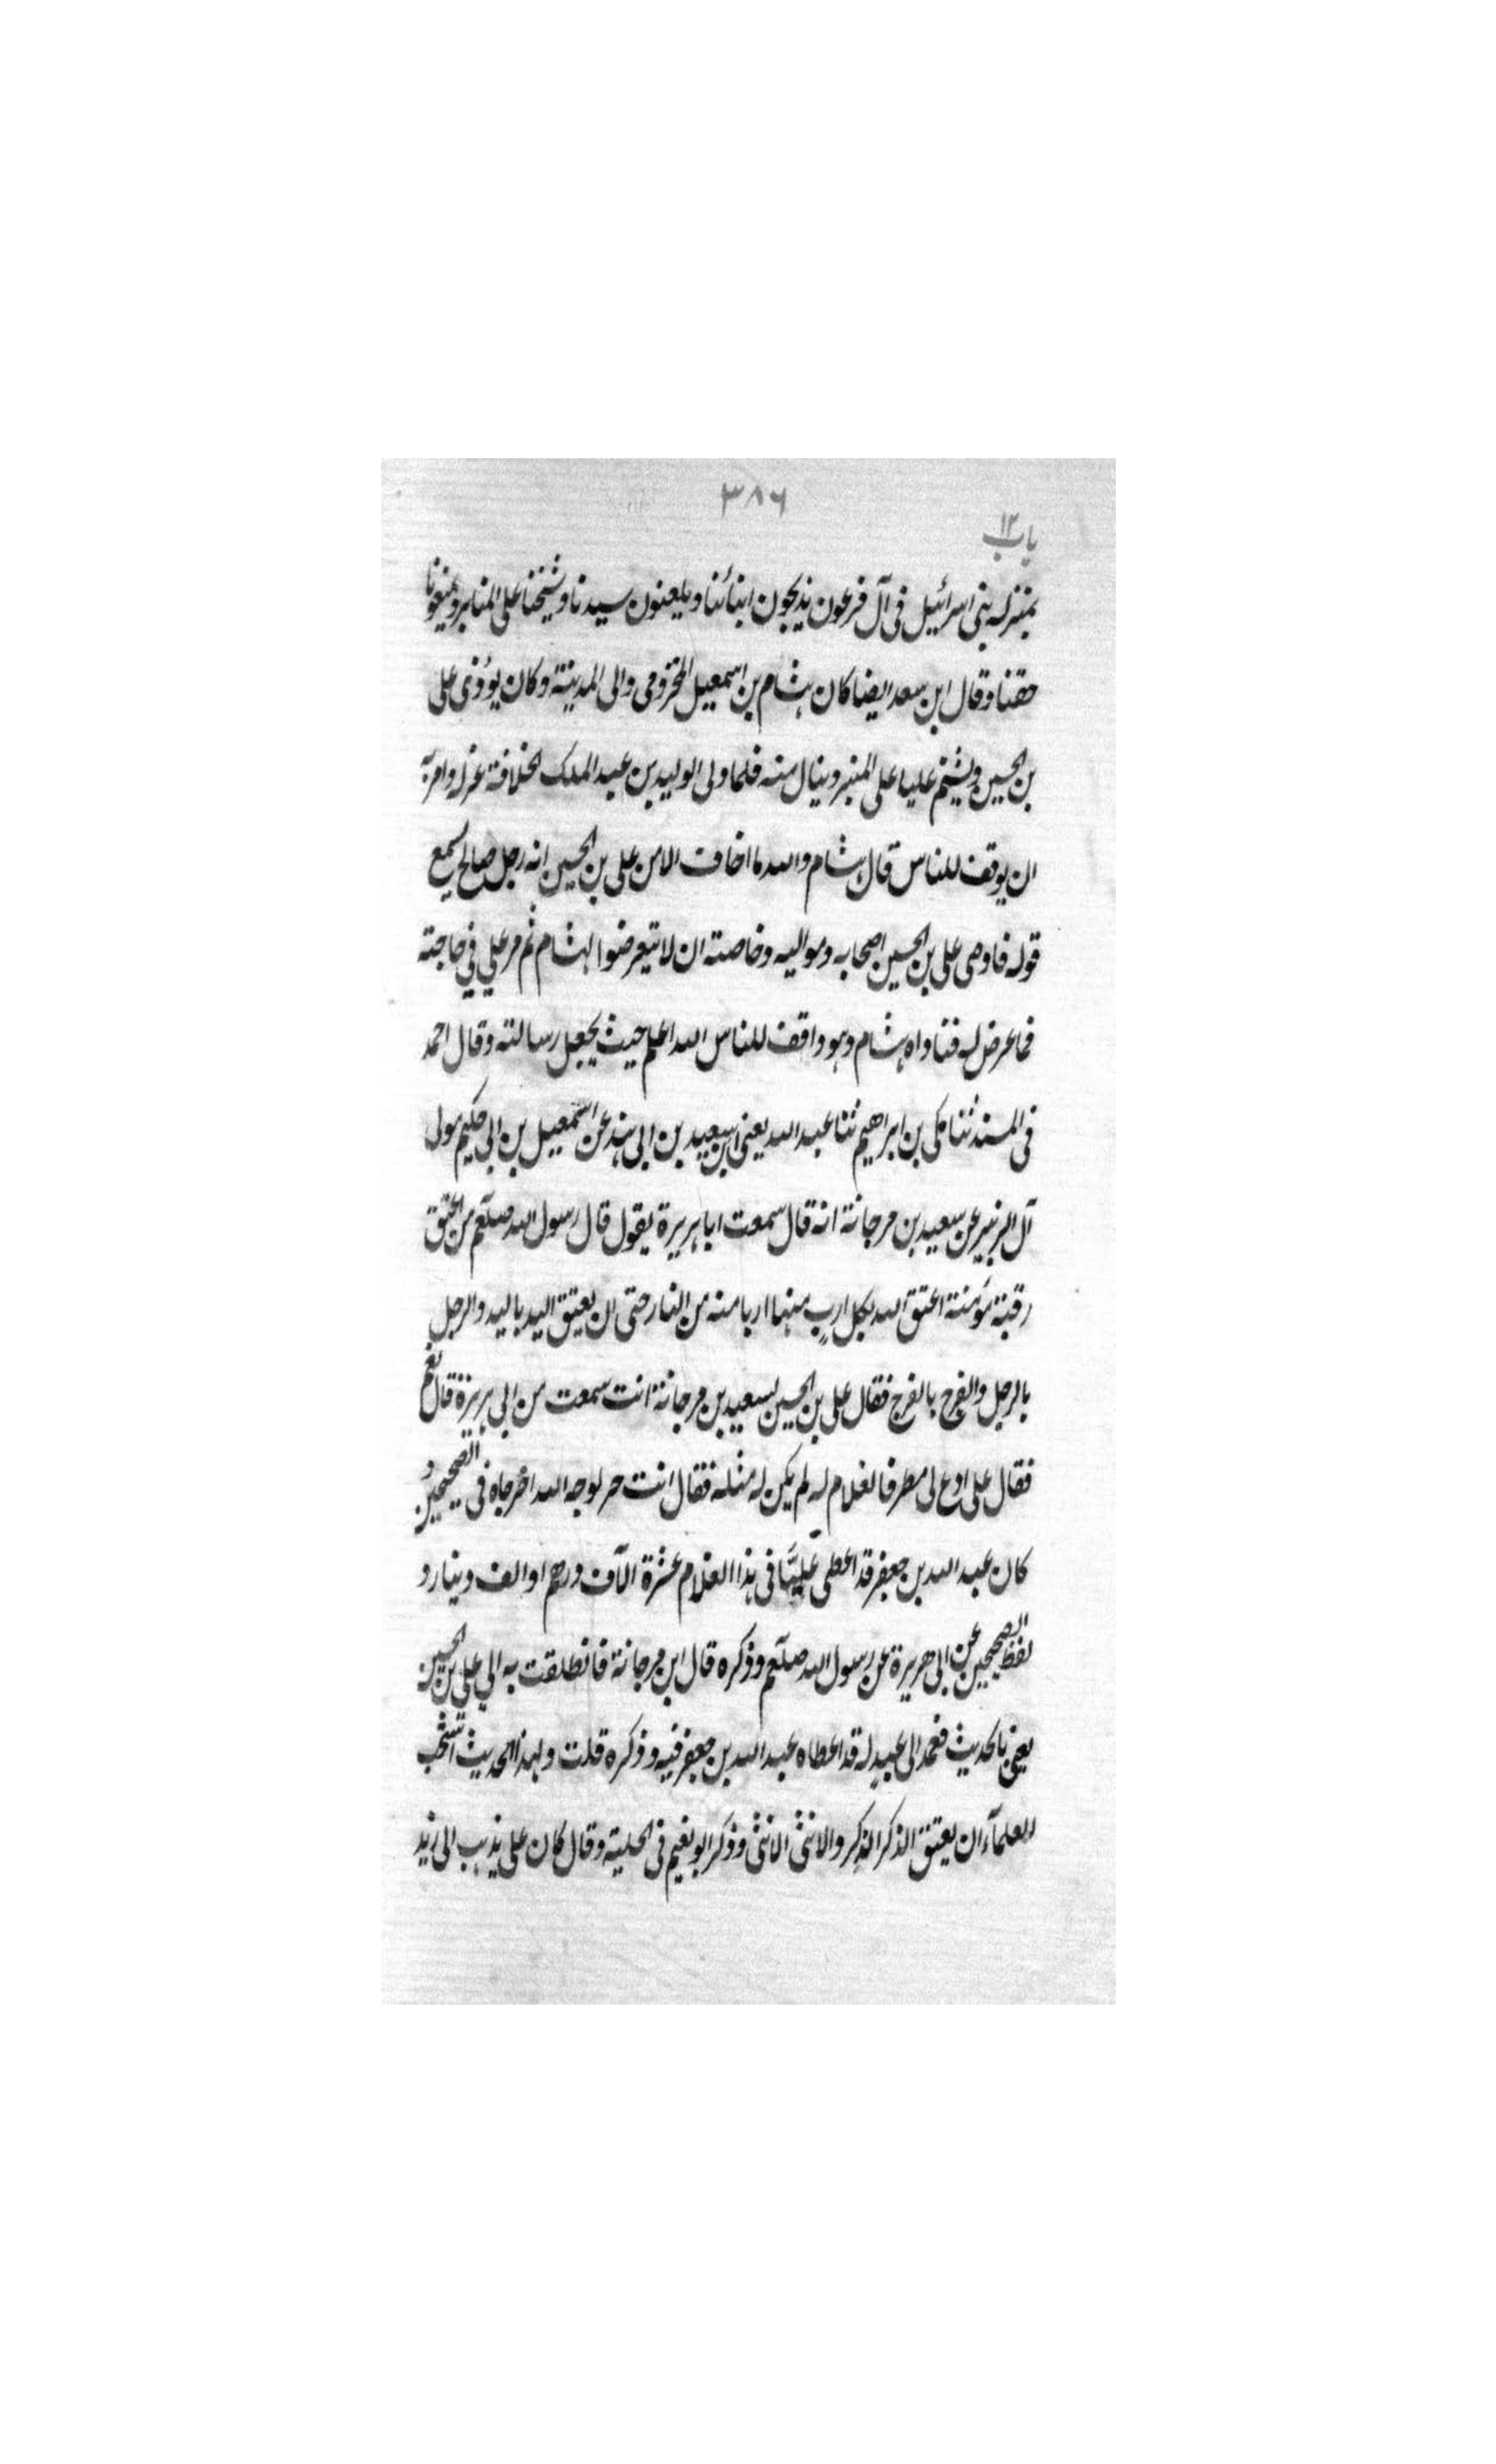 ٣٨٦
باب ١٢
بمنزلة بنى اسرائيل فى آل فرعون يذبحون ابنائنا ويلعنون سيدنا وشيخنا على المنابر ويمنعونا
حقنا وقال ابن سعد ايضا كان هشام بن اسمعيل المخزومى والى المدينة وكان يؤذى على
بن الحسين ويشتم عليا على المنبر وينال منه فلما ولى الوليد بن عبد الملك الخلافة عزله وامر به
ان يوقف للناس قال هشام والله ما اخاف الا من على بن الحسين انه رجل صالح يسمع
قوله فاوصى على بن الحسين اصحابه ومواليه وخاصته ان لا يتعرضوا لهشام ثم مر علي في حاجته
فما عرض له فناداه هشام وهو واقف للناس الله اعلم حيث يجعل رسالته وقال احمد
فى المسند ثنا مكى بن ابراهيم ثنا عبد الله يعنى ابن سعيد بن ابى هند عن اسمعيل بن ابى حكيم مولى
آل الزبير عن سعيد بن مرجانة انه قال سمعت ابا هريرة يقول قال رسول الله صلعم من اعتق
رقبة مؤمنة اعتق الله بكل ارب منها اربا منه من النار حتى ان يعتق اليد باليد والرجل
بالرجل والفرج بالفرج فقال على بن الحسين لسعيد بن مرجانة انت سمعت من ابى هريرة قال نعم
فقال على ادع لى مطرفا لغلام له لم يكن له مثله فقال انت حر لوجه الله اخرجاه فى الصحيحين و
كان عبد الله بن جعفر قد اعطى عليًّا فى هذا الغلام عشرة آلآف درهم او الف دينار و
لفظ الصحيحين عن ابى هريرة عن رسول الله صلعم وذكره قال ابن مرجانة فانطلقت به الي على بن الحسين
يعنى بالحديث فعمد الى عبد له قد اعطاه عبد الله بن جعفر فيه وذكره قلت ولهذا الحديث استحب
العلمآء ان يعتق الذكر الذكر والانثى الانثى وذكر ابو نعيم فى الحلية وقال كان على يذهب الى زيد